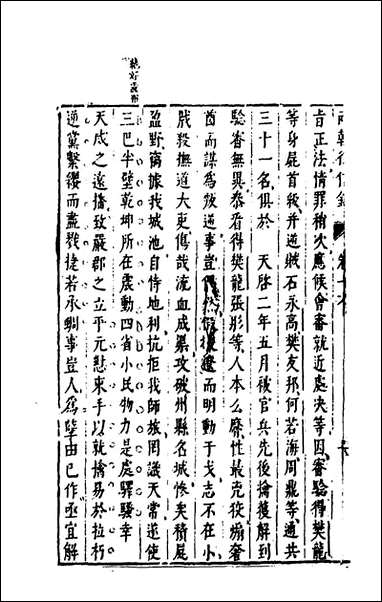 兩朝從信錄　卷十六
旨正法情罪稍次應候會審就近處决等因審驗得樊龍
等身屍首級并逆賊石永高樊友邦何若海周鼎等通共
三十一名俱於　天啓二年五月被官兵先後擒獲解到
驗審無異叅看得樊龍張彤等人本么麽性最兇狡煽奢
酋而謀爲叛逆事豈而明動干戈志不在小
戕殺撫道大吏傷哉流血成渠攻破州縣名城慘矣積屍
盈野竊據我城池自恃地利抗拒我師旅罔議天常遂使
三巴半壁乾坤所在震動四省小民物力是處驛騷幸
天威之遠播致嚴郡之立平元憝束手以就擒易於拉朽
逆黨繫纓而盡戮捷若承蜩事豈人爲孽由已作亟宜解